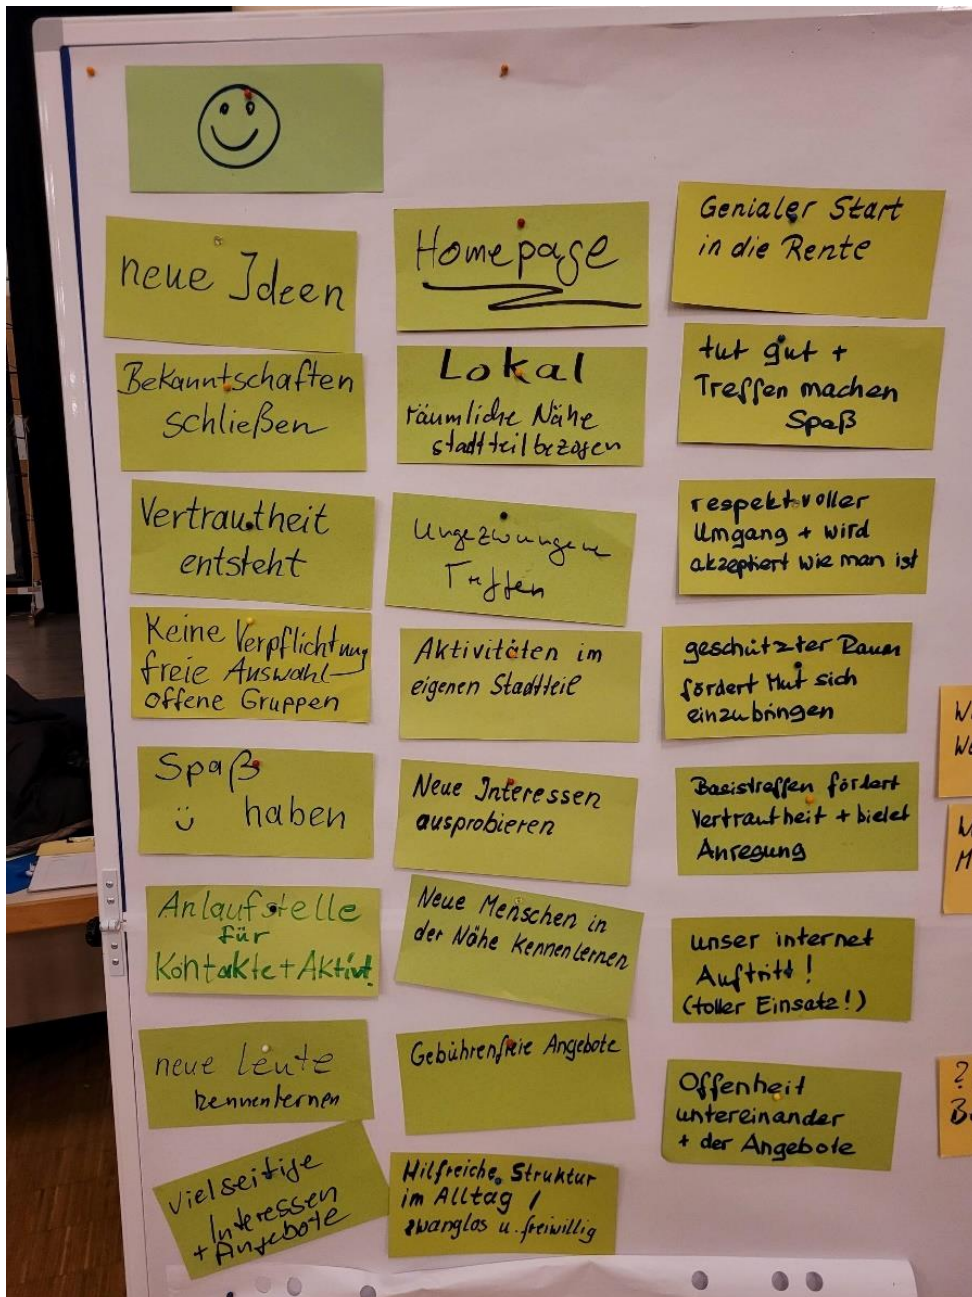 neue Ideen
Bekanntschaften
schließen
Vertrautheit
entsteht
Keine Verpflichtung
freie Auswahl
offene Gruppen
Spaß
haben
Anlaufstelle
für
Kontakte + Aktivt.
neue Leute
kennenlernen
Vielseitige
Interessen
+ Angebote
Homepage
Lokal
räumliche Nähe
stadtteilbezogen
Ungezwungene
Treffen
Aktivitäten im
eigenen Stadtteil
Neue Interessen
ausprobieren
Neue Menschen in
der Nähe kennenlernen
Gebührenfreie Angebote
Hilfreiche Struktur
im Alltag /
zwanglos u. freiwillig
Genialer Start
in die Rente
tut gut +
Treffen machen
Spaß
respektvoller
Umgang + wird
akzeptiert wie man ist
geschützter Raum
fördert Mut sich
einzubringen
Basistreffen fördert
Vertrautheit + bietet
Anregung
unser internet
Auftritt!
(toller Einsatz!)
Offenheit
untereinander
+ der Angebote
?